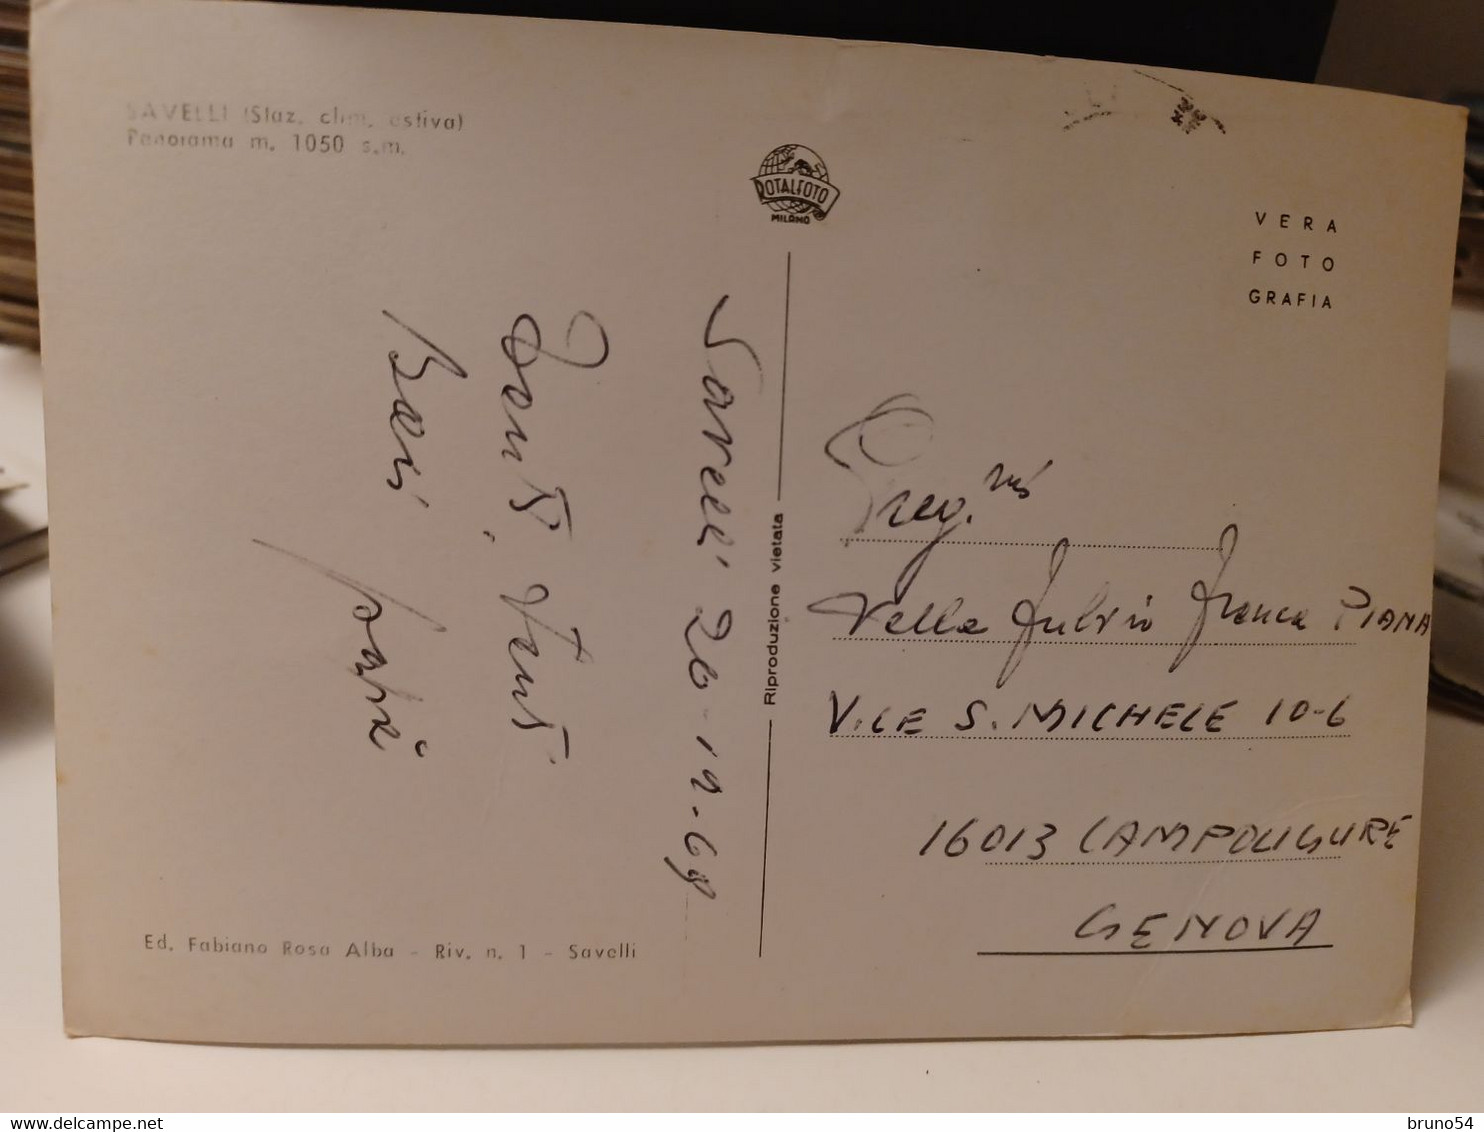 SAVELLI (Staz. clim. estiva)
Panorama m. 1050 s.m.
ROTALFOTO
MILANO
VERA
FOTO
GRAFIA
Savelli 20-12-68
Tanti, tanti
Baci
papà
Riproduzione vietata
Preg.mi
Vella Fulvio Franca PIANA
V.LE S. MICHELE 10-6
16013 CAMPOLIGURE
GENOVA
Ed. Fabiano Rosa Alba - Riv. n. 1 - Savelli
bruno54